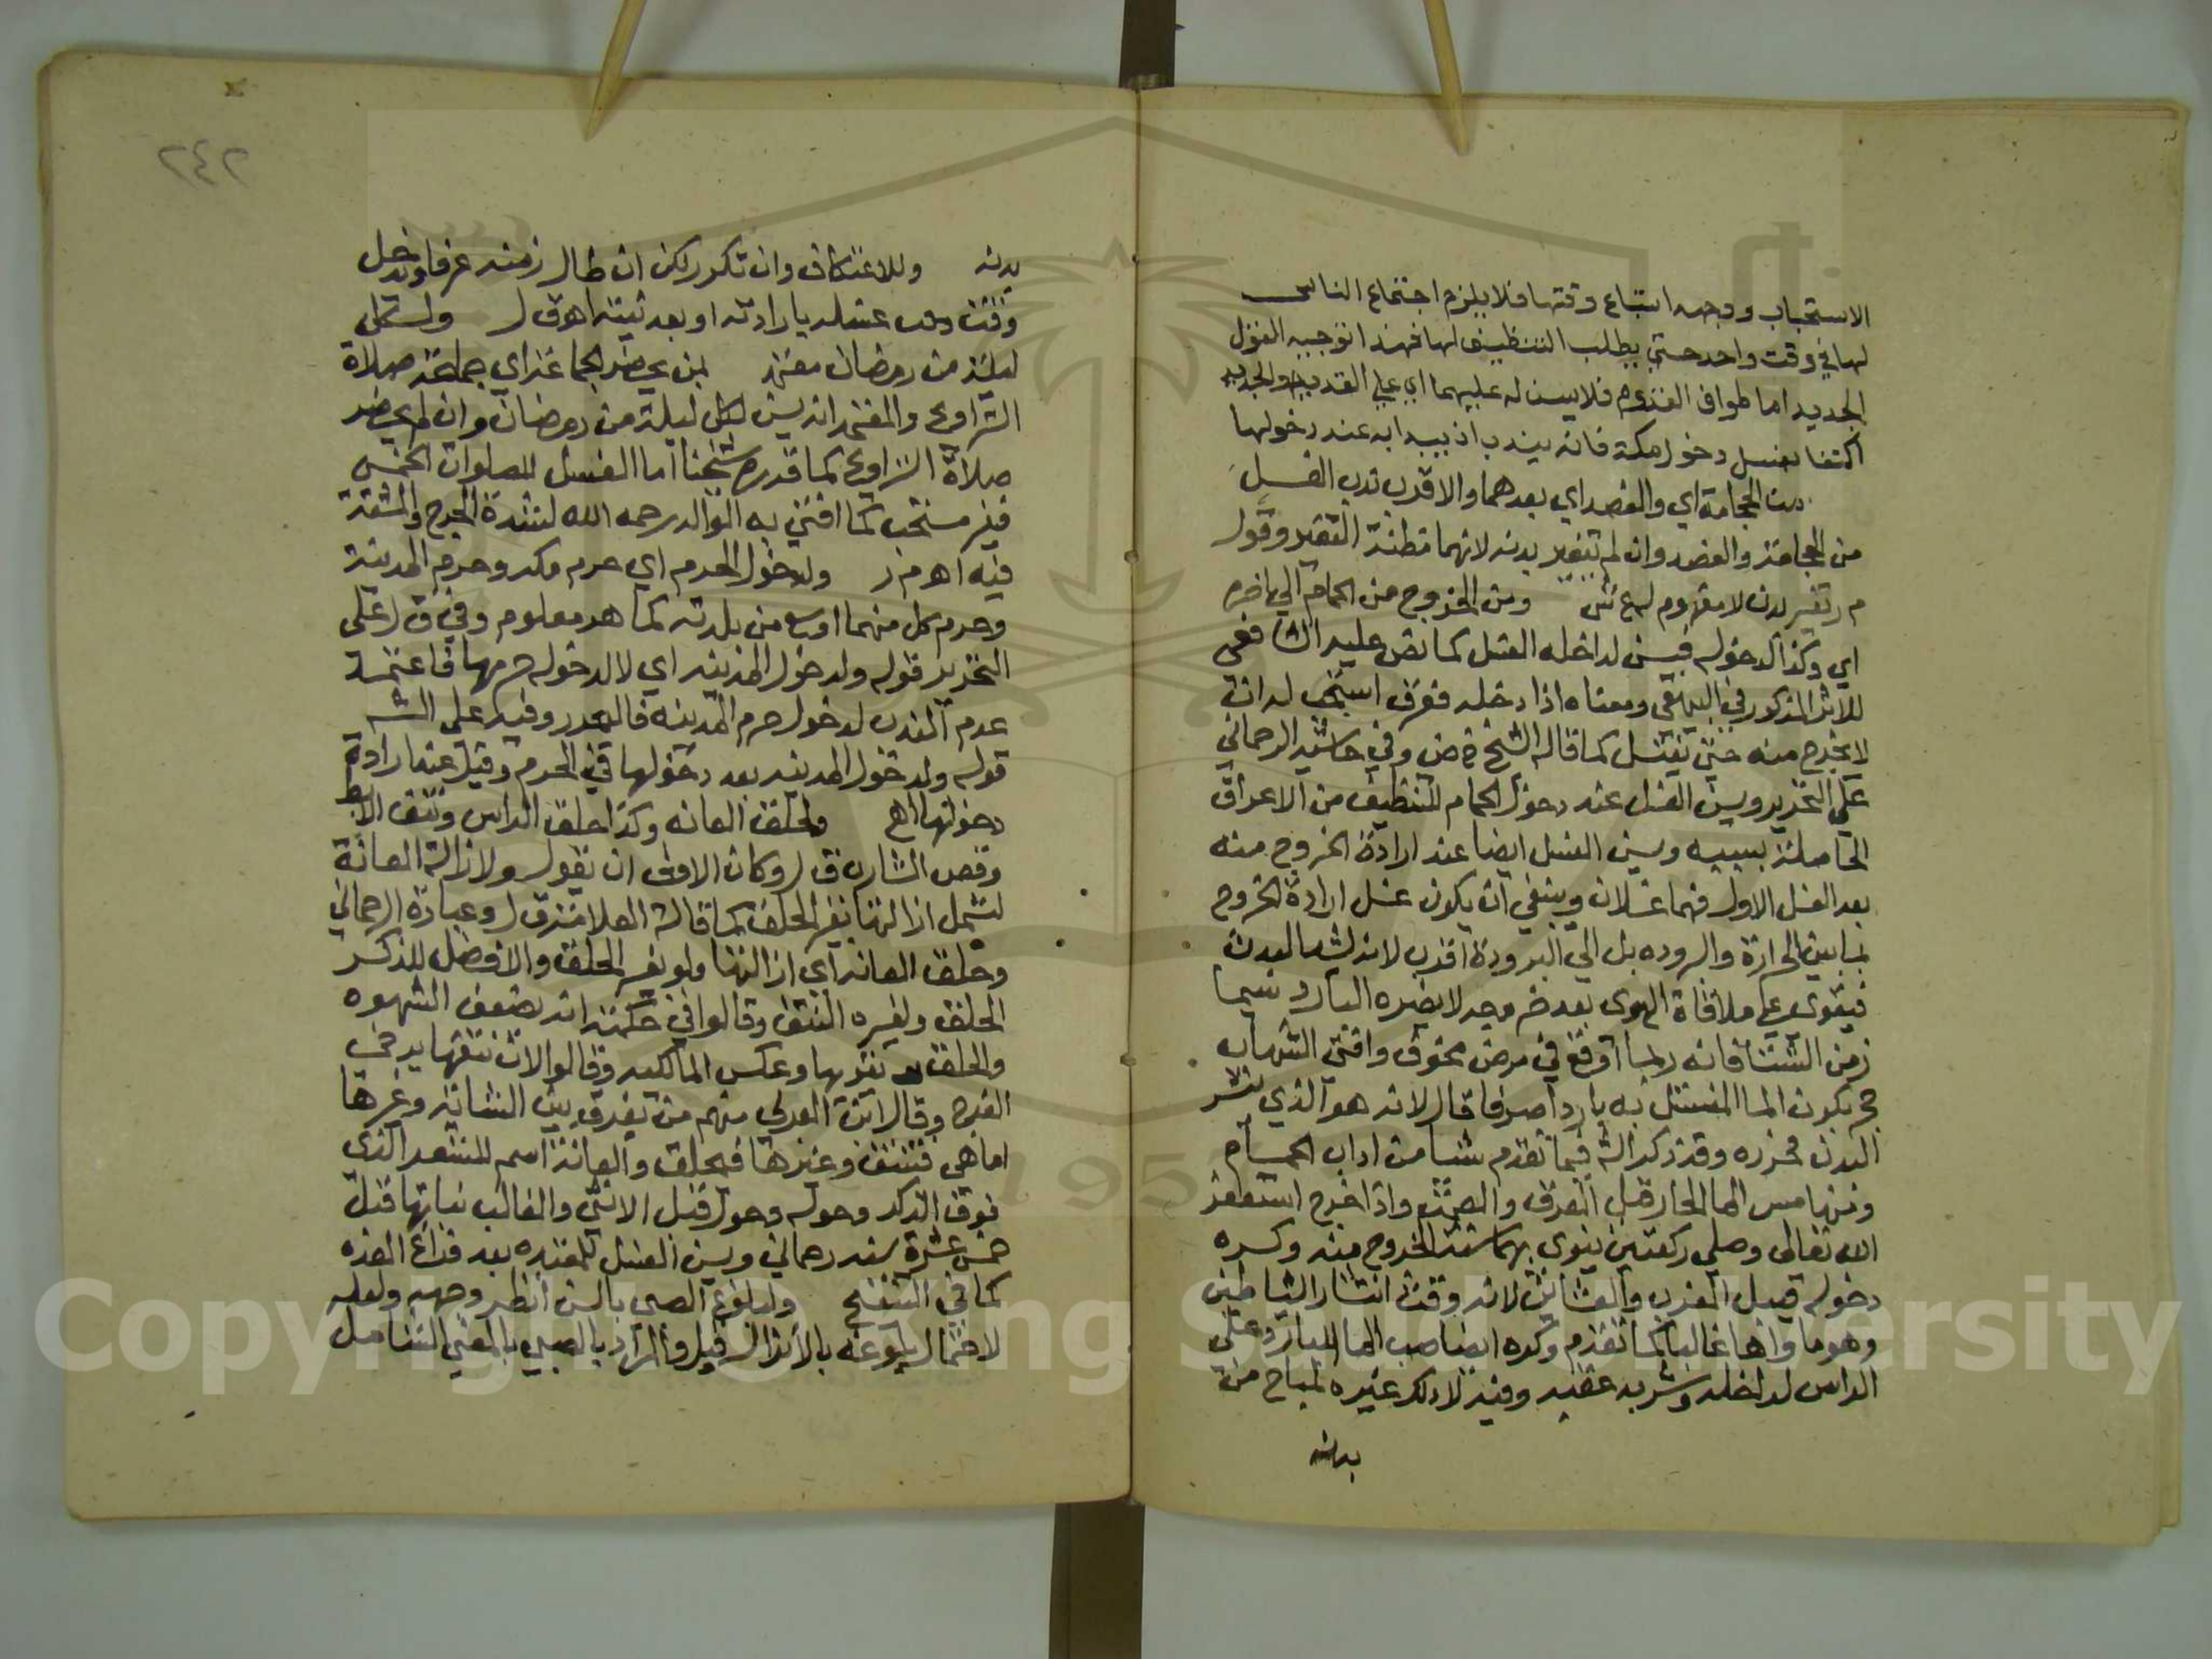 الاستحباب ووجهه اتباع وقتها فلا يلزم اجتماع الناس
لها في وقت واحد حتي يطلب التنظيف لها فهذا توجيه القول
الجديد اما طواف القدوم فلا يسن له عليهما اي علي القديم والجديد
اكتفا بغسل دخول مكة فانه يندب اذ يبدا به عند دخولها
من الحجامة اي والفصد اي بعدهما والاقرب ندب الغسل
من الحجامة والفصد وان لم يتغير بدنه لانهما مظنة التغير وقول
م ر تغير بدن لا مفهوم له ع ش ومن الخروج من الحمام الي اخره
اي وكذا لدخوله فيسن لداخله الغسل كما نص عليه الشافعي
للاثر المذكور في البيهقي ومعناه اذا دخله فعرق استحب له ان
لا يخرج منه حتي يغتسل كما قاله الشيخ وفي حاشية الرحماني
علي التحرير ويسن الغسل عند دخول الحمام للتنظيف من الاعراق
الحاصلة بسببه وسن الغسل ايضا عند ارادة الخروج منه
بعد الغسل الاول فهما غسلان وينبغي ان يكون غسل ارادة الخروج
بما بين الحرارة والبروده بل الي البرودة اقرب لانه يشد البدن
فيقوي علي ملاقاة الهوي بعد خروجه لا يضره البارد سيما
زمن الشتا فانه ربما اوقع في مرض مخوف وافتي الشهاب
حج بكون الما المغتسل به باردا صرفا قال لانه هو الذي يشد
البدن فحرره وقد ذكر الش فيما تقدم شيا من اداب الحمام
ومنها مس الما الحار قبل العرق والصمت واذا خرج استغفر
الله تعالي وصلي ركعتين ينوي بهما سنة الخروج منه وكره
دخوله قبيل المغرب والعشائين لانه وقت انتشار الشياطين
وهو ماواها غالبا كما تقدم وكره ايضا صب الما البارد علي
الراس لداخله وشربه عقبه وفيه لا دلك غيره لمباح من
بدنه
٢٤٢
بدنه وللاعتكاف وان تكرر لكن ان طال زمنه عرفا ويدخل
وقت غسله بارادته او بعد نيته اهـ ق ل ولكل
ليلة من رمضان معتمد لمن يحضر الجماعة اي جماعة صلاة
التراويح والمعتمد انه يسن لكل ليلة من رمضان وان لم يحضر
صلاة التراويح كما قرره شيخنا اما الغسل للصلوات الخمس
فغير مستحب كما افتي به الوالد رحمه الله لشدة الحرج والمشقة
فيه اهـ م ر ولدخول الحرم اي حرم مكه وحرم المدينة
وحرم كل منهما اوسع من بلدته كما هو معلوم وفي ق ل علي
التحرير قوله ولدخول المدينه اي لا لدخول حرمها فاعتمد
عدم الندب لدخول حرم المدينه فالمحرر وفيه علي الش
قوله ولدخول المدينه بعد دخولها في الحرم وقيل عند ارادة
دخولها اهـ ولحلق العانه وكذا حلق الراس ونتف الابط
وقص الشارب ق ل وكان الاولي ان يقول ولازالة العانة
لتشمل ازالتها بغير الحلق كما قاله العلامة ق ل وعبارة الرحماني
وحلق العانه اي ازالتها ولو بغير الحلق والافضل للذكر
الحلق ولغيره النتف وقالوا في حكمته انه يضعف الشهوه
والحلق يقويها وعكس المالكيه وقالوا لان نتفها يرخي
الفرج وقال ابن العربي منهم من يفرق بين الشابة وغيرها
اما هي فتنتف وغيرها فحلق والعانة اسم للشعر الذي
فوق الذكر وحوله وحول قبل الانثي والغالب نباتها قبل
خمس عشرة سنه رحماني ويسن الغسل للمعتده بعد فراغ العده
كما في التنقيح ولبلوغ الصبي بالسن انظر وجهه ولعله
لاحتمال بلوغه بالانزال قبل والمراد بالصبي بالمعني الشامل